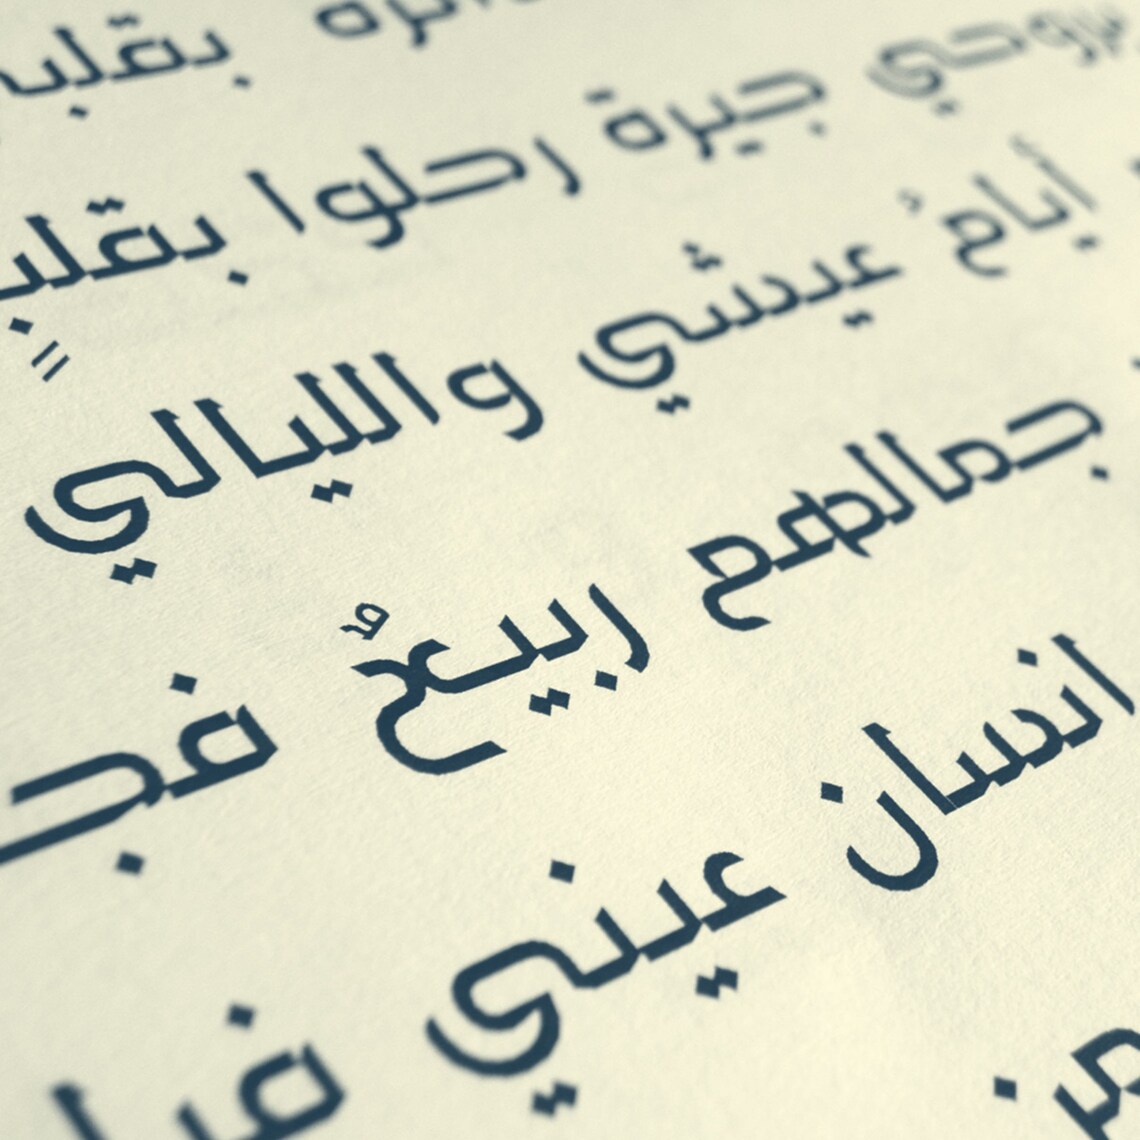 بقلبه
بروحي جيرة رحلوا بقلبٍ
أيامُ عيشي والليالي
جمالهم ربيعٌ فجـ
انسان عيني فيا
من